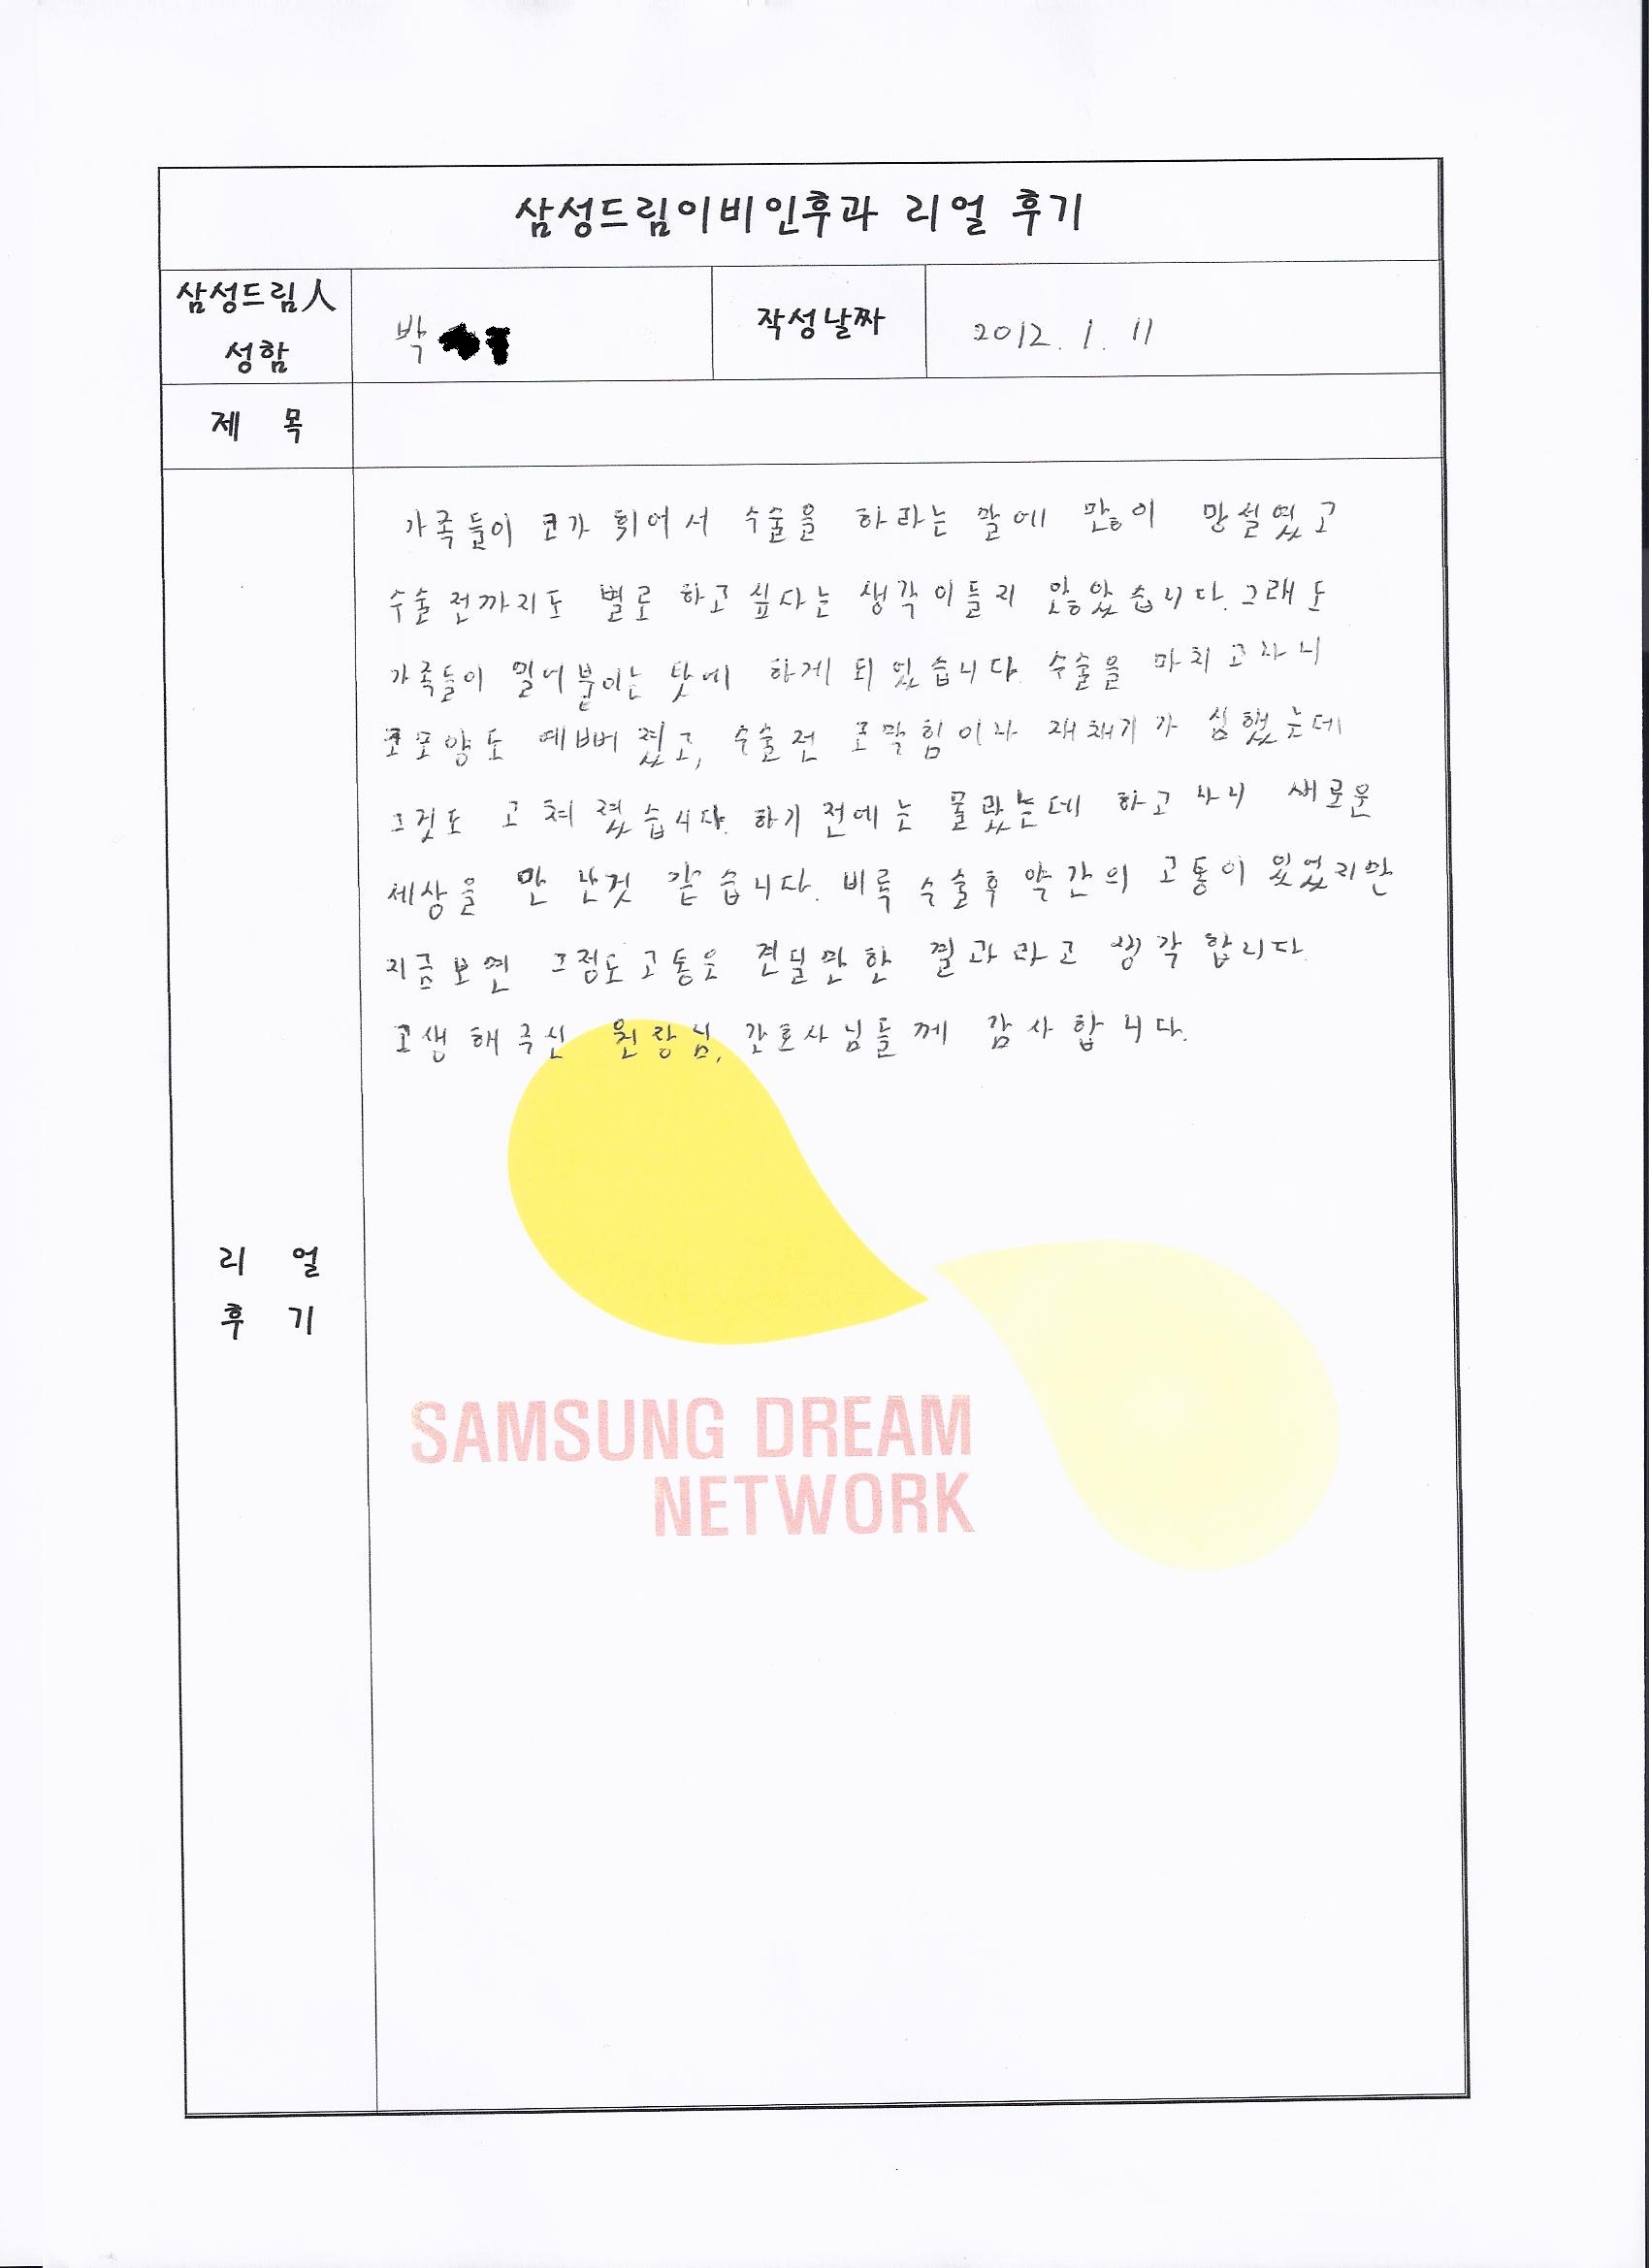 삼성드림이비인후과 리얼 후기
삼성드림人
성함
박
작성날짜
2012. 1. 11
제 목
가족들이 코가 휘어서 수술을 하라는 말에 많이 망설였고
수술 전까지도 별로 하고싶다는 생각이들지 않았습니다. 그래도
가족들이 밀어붙이는 탓에 하게 되었습니다. 수술을 마치고나니
코모양도 예뻐졌고, 수술전 코막힘이나 재채기가 심했는데
그것도 고쳐졌습니다. 하기 전에는 몰랐는데 하고나니 새로운
세상을 만난것 같습니다. 비록 수술후 약간의 고통이 있었지만
지금보면 그정도고통은 견딜만한 결과라고 생각합니다.
고생해주신 원장님, 간호사님들께 감사합니다.
리 얼
후 기
SAMSUNG DREAM
NETWORK